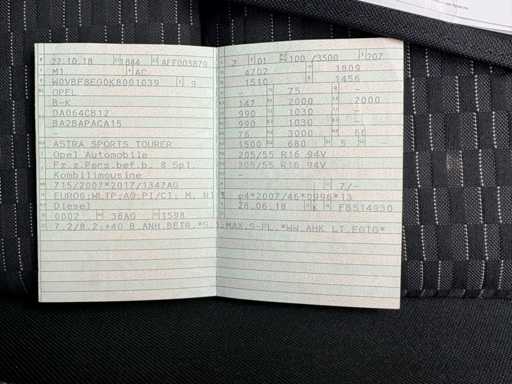 22.10.18 1844 AFF003879
M1 AC
W0VBF8EG0K8001039 9
OPEL
B-K
DA064CB12
BA2BAPACA15
-
ASTRA SPORTS TOURER
Opel Automobile
Fz.z.Pers.bef.b. 8 Spl.
Kombilimousine
715/2007*2017/1347AG
EURO6;WLTP;AG;PI/CI; M, N1
Diesel
0002 36AG 1598
7.2/8.2:+40 B.ANH.BETR.*S.
2 01 100 /3500 207
4702 1809
1510 1456
- 75 -
147 2000 2000
990 1030 -
990 1030 -
75 3000
1500 680 5 -
205/55 R16 94V
205/55 R16 94V
-
7/-
e4*2007/46*0996*13
26.06.18 K
MAX.5-PL.*WW.AHK LT.EGTG*